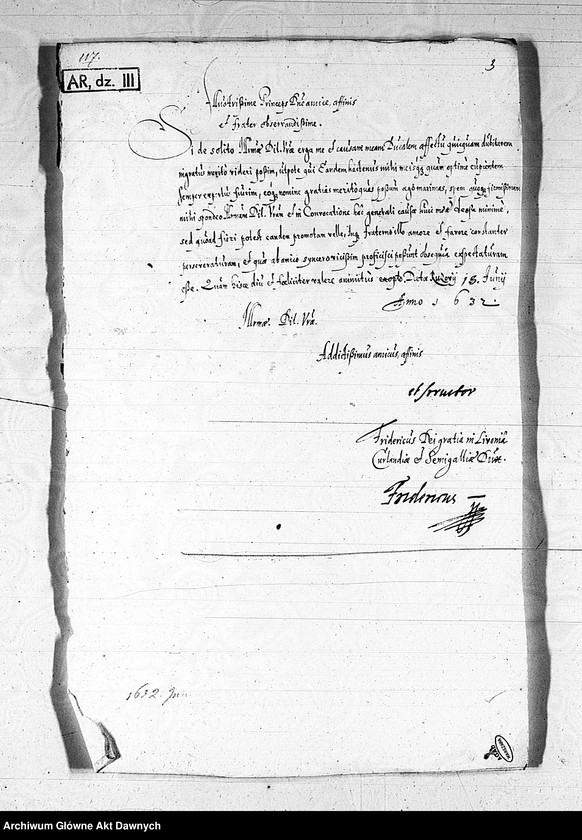 117.
3
AR, dz. III
Illustrissime Princeps Dńe amice, affinis
et Frater observandissime.
Si de solito Illrmæ Dil. Vræ erga me et causam meam Ducalem affectu quicquam dubitarem
ingratus meritò videri possim, utpote qui Eandem hactenus mihi meisq; quàm optimè cupientem
semper expertus fuerim, eoq; nomine gratias meritò quas possum ago maximas, spem
mihi spondeo Illrmam Dil. Vram et in Convocatione hac generali causæ huic meæ deesse minimè,
sed quoad fieri potest eandem promotam velle, inq; fraterno illo amore et favore constanter
perseveraturam, et quæ ab amico syncerovicissim proficisci possunt obsequia expectaturam
esse. Quam hisce diu et fœliciter valere animitùs exopto. 18. Junij
Anno 1632.
Illrmæ. Dil. Vræ.
Addictissimus amicus, affinis
et servitor
Fridericus Dei gratia in Livoniâ
Curlandiæ et Semigalliæ Dux.
Fridericus
1632. Jun.
AGAD
WARSZAWA
Archiwum Główne Akt Dawnych